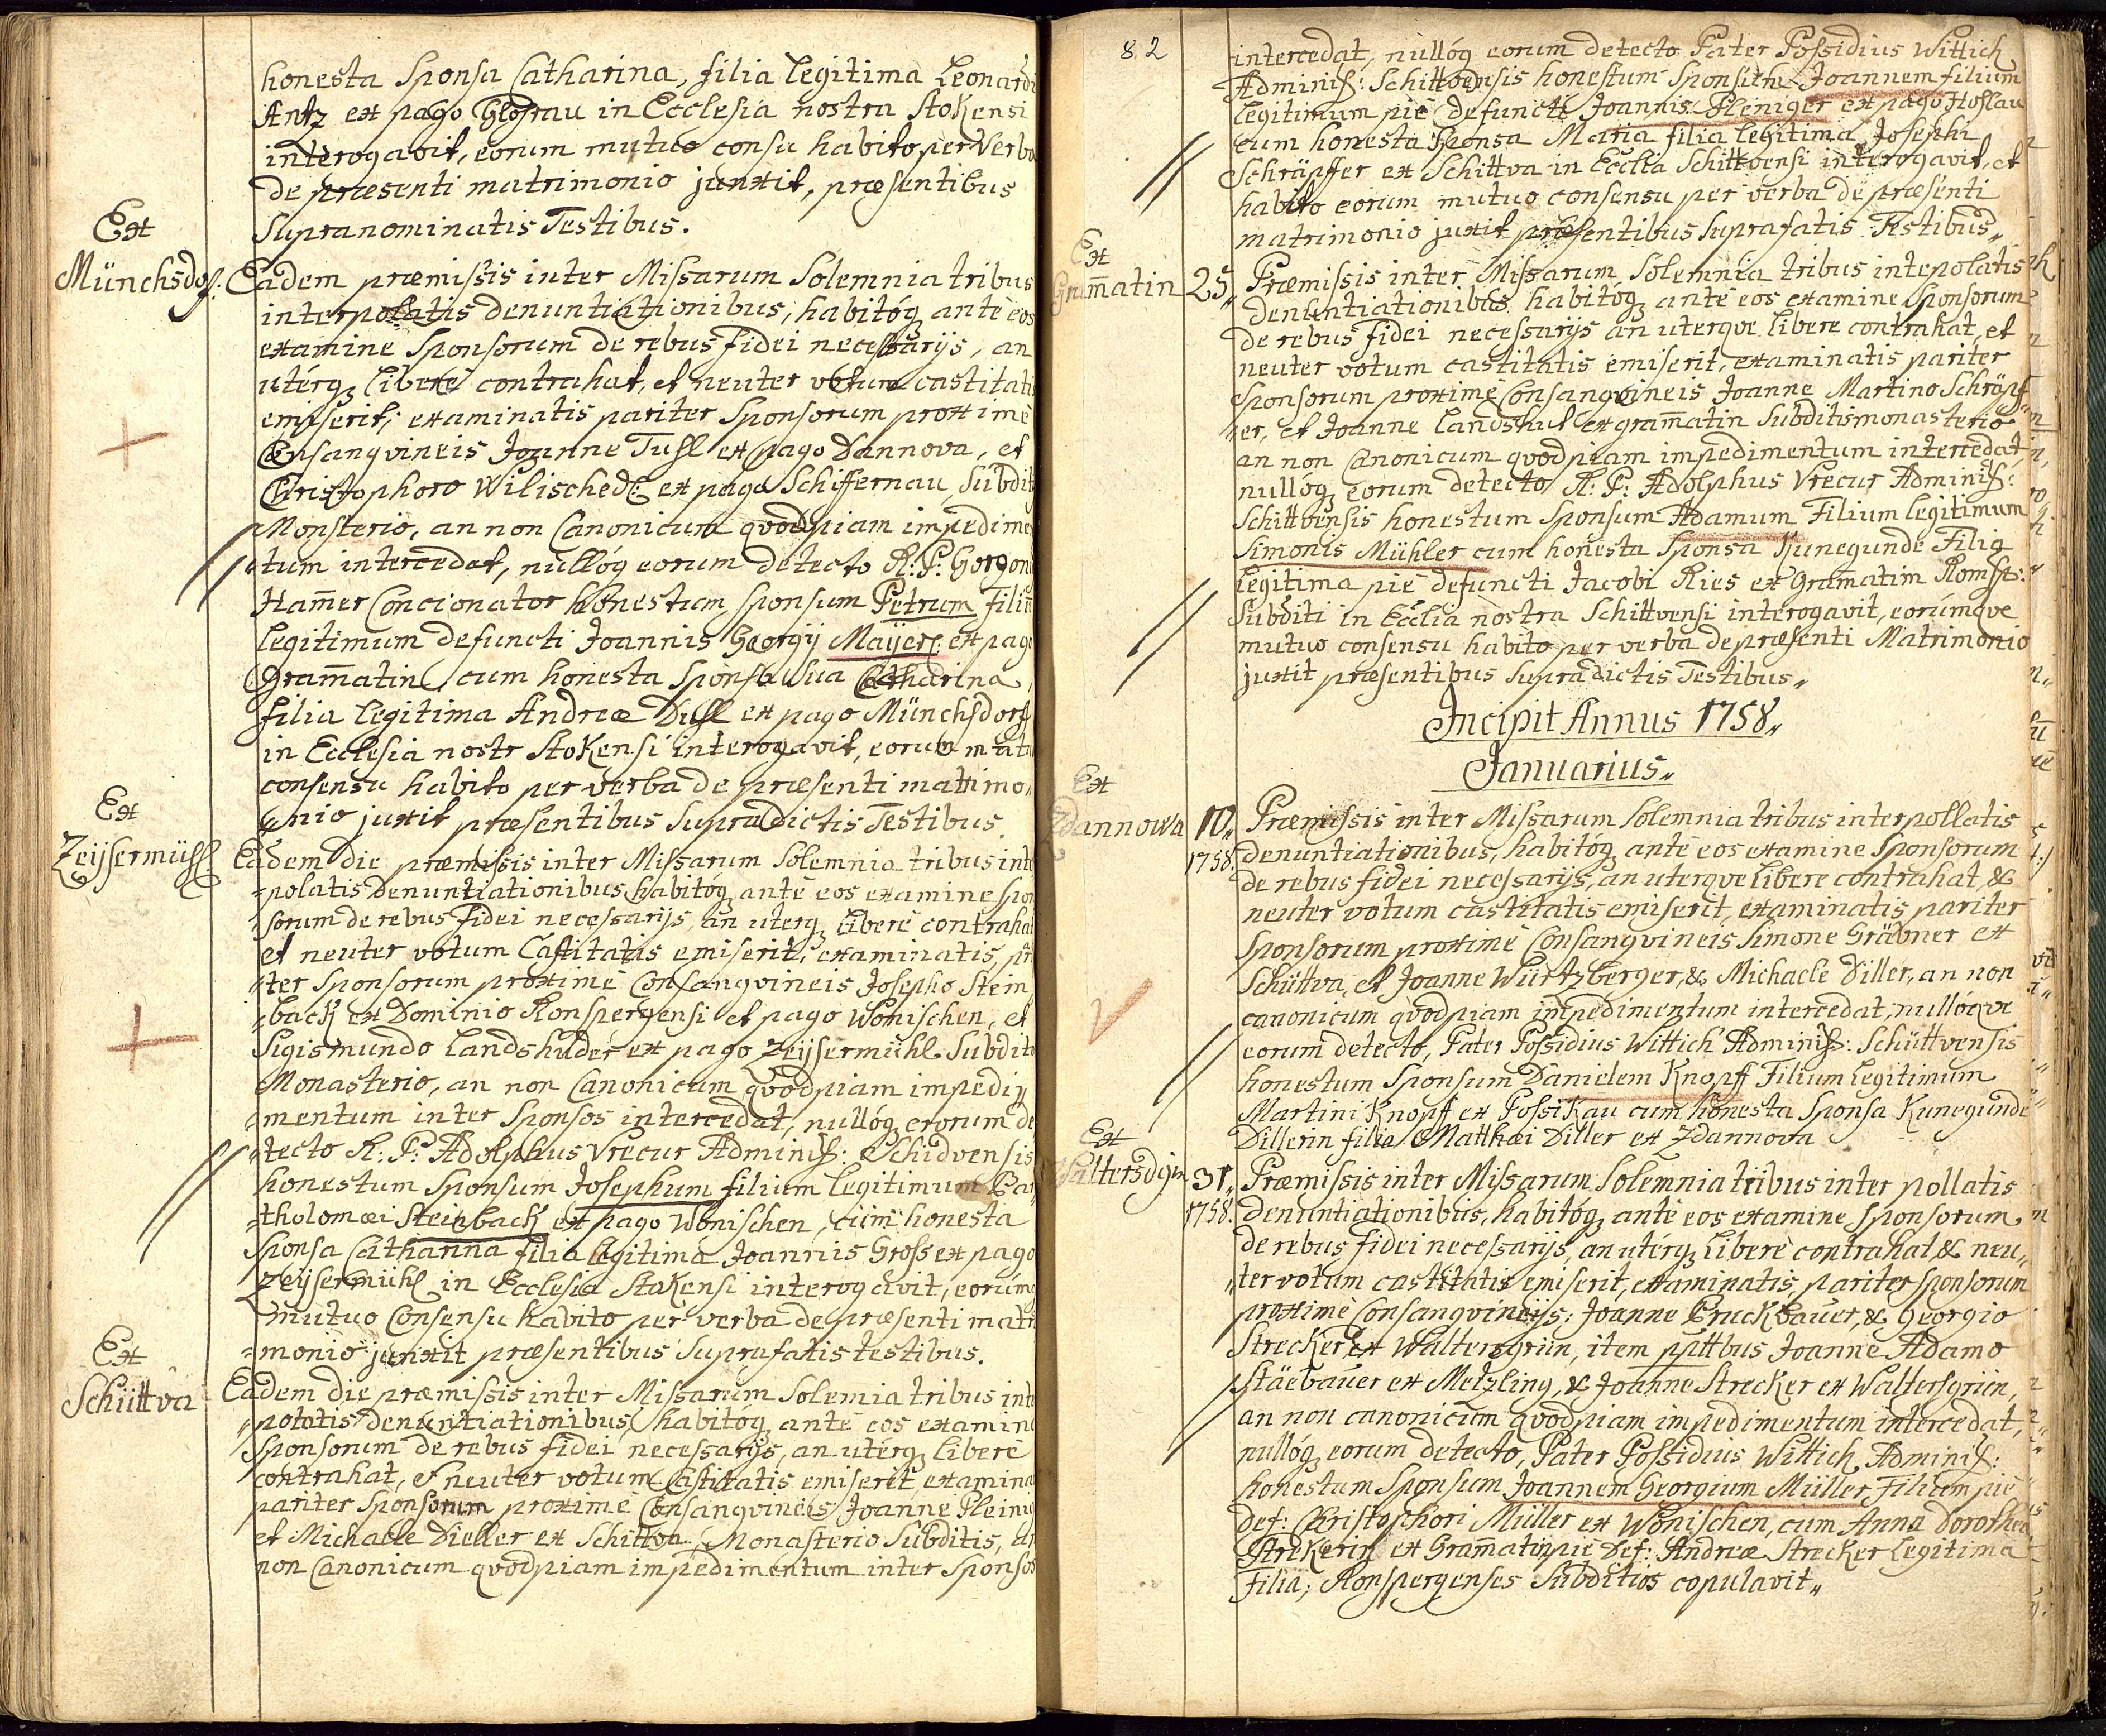 honesta Sponsa Catharina, filia legitima Leonardi
Antz ex pago Glosrau in Ecclesia nostra Stokensi
interogavit, eorum mutuo consu habito per Verba
de præsenti matrimonio junxit, præsentibus
Supranominatis Testibus.
Ex
Münchsdof:
Eadem præmissis inter Missarum Solemnia tribus
interpolatis denuntiationibus, habitóq ante eos
examine Sponsorum de rebus fidei necessarijs, an
utérq libere contrahat, et neuter votum castitatis
emiserit, examinatis pariter Sponsorum proxime
Consangvineis Joanne Tuhl ex pago Dannova, et
Christophoro Wilisched: ex pago Schiffernau Subdit
Monsterio, an non Canonicum qvodpiam impedimen
tum intercedat, nullóq eorum detecto R: P: Gorgon
Ham̄er Concionator honestum Sponsum Petrum filiū
legitimum defuncti Joannis Georgij Maijer: ex pago
Gram̄atin, cum honesta Sponsa Sua Catharina,
filia legitima Andreæ Duhl ex pago Münchsdorf
in Ecclesia nostr Stokensi interogavit, eorum mutu
consensu habito per verba de præsenti matrimo„
„nio juxit præsentibus Supradictis Testibus.
Ex
Zeijsermühl
Eadem die præmissis inter Missarum Solemnia tribus inte
„polatis denuntiationibus, habitóq ante eos examine spon
„sorum de rebus fidei necessarijs, an uterq libere contrahat
et neuter votum Castitatis emiserit, examinatis par
„ter Sponsorum proxime Consangvineis Josepho Stein
„back ex Dominio Ronspergensi et pago Wonischen, et
Sigismundo Landshuder ex pago Zeijsermühl Subdit
Monasterio, an non Canonicum qvodpiam impedi„
„mentum inter Sponsos intercedat, nullóq erorum de
„tecto R: P: Adolphus Vrecur Adminis: Schidvensis
honestum Sponsum Josephum filium legitimum Bar
„tholomæi Steinback ex pago Wonischen, cum honesta
Sponsa Catharina filia legitima Joannis Gross ex pago
Zeijsermühl in Ecclesia Stokensi interogavit, eorúmq
mutuo Consensu habito per verba de præsenti matr
„monio junxit præsentibus Suprafatis testibus.
Ex
Schüttva
Eadem die præmissis inter Missarum Solemia tribus inte
„polatis denuntiationibus, habitóq ante eos examine
Sponsorum de rebus fidei necessarijs, an utérq libere
contrahat, et neuter votum Castitatis emiserit, examina
pariter Sponsorum proxime Consangvineis Joanne Pleinin
et Michaele Dieller ex Schittva Monasterio Subditis, an
non Canonicum qvodpiam impedimentum inter Sponsos
82
intercedat, nullóq eorum detecto Pater Possidius Wittich
Adminis: Schittvensis honestum Sponsum Joannem filium
legitimum pie defuncti Joannis Pleniger ex pago Hoslau
cum honesta Sponsa Maria filia legitima Josephi
Schräpffer ex Schittva in Ecclia Schittvensi interogavit, et
habito eorum mutuo consensu per verba de præsenti
matrimonio juxit præsentibus Suprafatis Testibus„
Ex
Gram̄atin 25„
Præmissis inter Missarum Solemnia tribus intepolatis
denuntiationibus habitóq ante eos examine Sponsorum
de rebus fidei necessarijs an uterque libere contrahat, et
neuter votum castitatis emiserit, examinatis pariter
Sponsorum proxime Consangvineis Joanne Martino Schräpf„
„er, et Joanne Landshut ex gram̄atin Subditis monasterio
an non Canonicum qvodpiam impedimentum intercedat,
nullóq eorum detecto R: P: Adolphus Vrecur Adminis:
Schittvensis honestum Sponsum Adamum Filium legitimum
Simonis Mühler cum honesta Sponsa Kunegunde Filia
legitima pie defuncti Jacobi Ries ex Gramatim Romsps:
Subditi in Ecclia nostra Schittvensi interogavit, eorúmqve
mutuo consensu habito per verba de præsenti Matrimonio
juxit præsentibus Supradictis Testibus„
Incipit Annus 1758„
Januarius„
Ex
Zdannowa 10„
1758.
Præmissis inter Missarum Solemnia tribus interpollatis
denuntiationibus, habitóq ante eos examine Sponsorum
de rebus fidei necessarijs, an uterqve libere contrahat, &
neuter votum castitatis emiserit, examinatis pariter
Sponsorum proxime Consangvineis Simone Gräbner ex
Schüttva, et Joanne Würtzberger, & Michaele Diller, an non
canonicum qvodpiam impedimentum intercedat, nullóqve
eorum detecto, Pater Possidius Wittich Adminis: Schüttvensis
honestum Sponsum Danielem Knopff Filium legitimum
Martini Knopff ex Possikau cum honesta Sponsa Kunegunde
Dillerin filia Matthæi Diller ex Zdannova
Ex
Waltersgrün 31„
1758.
Præmissis inter Missarum Solemnia tribus inter pollatis
denuntiationibus, habitóq ante eos examine Sponsorum
de rebus fidei necessarijs, an utérq libere contrahat, & neu„
„ter votum castitatis emiserit, examinatis, pariter Sponsorum
proxime Consangvineijs: Joanne Bruckbauer, & Georgio
Strecker ex Waltersgrün, item ppttbus Joanne Adamo
Stäebauer ex Metzling, & Joanne Strecker ex Waltersgrien,
an non canonicum qvodpiam impedimentum intercedat,
nullóq eorum detecto, Pater Possidius Wittich Adminis:
honestum Sponsum Joannem Georgium Müller Filium pie
def: Christophori Müller ex Wonischen, cum Anna Dorothea
Strekerin ex Gram̄atin pie def: Andreæ Strecker legitima
filia; Ronspergenses Subditos copulavit„